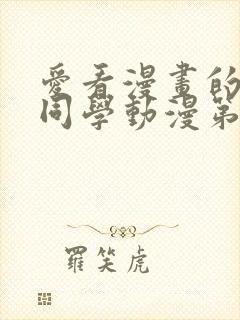 愛看漫畫的
同學動漫第
羅笑虎